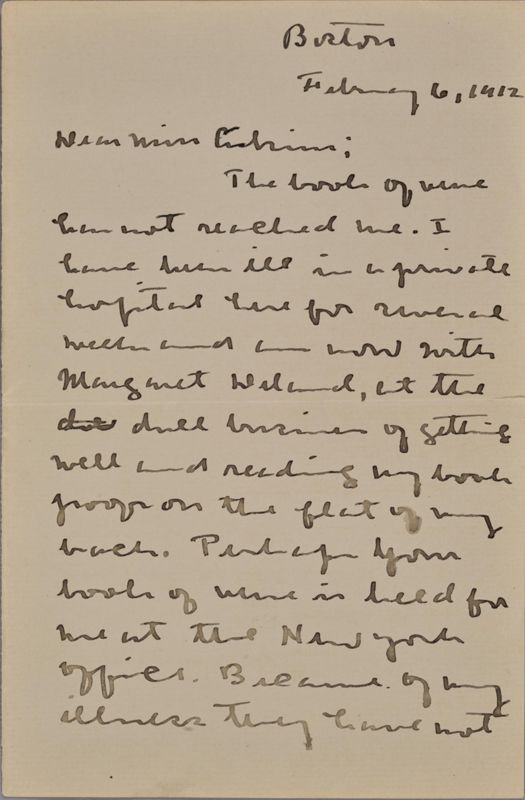 Boston
February 6, 1912
Dear Miss
The book of verse
has not reached me. I
have been ill in a private
hospital here for several
weeks and am now with
Margaret Deland, at the
dull business of getting
well and reading my book
proofs on the flat of my
back. Perhaps your
book of verse is held for
me at the New York
office. Because of my
illness they have not